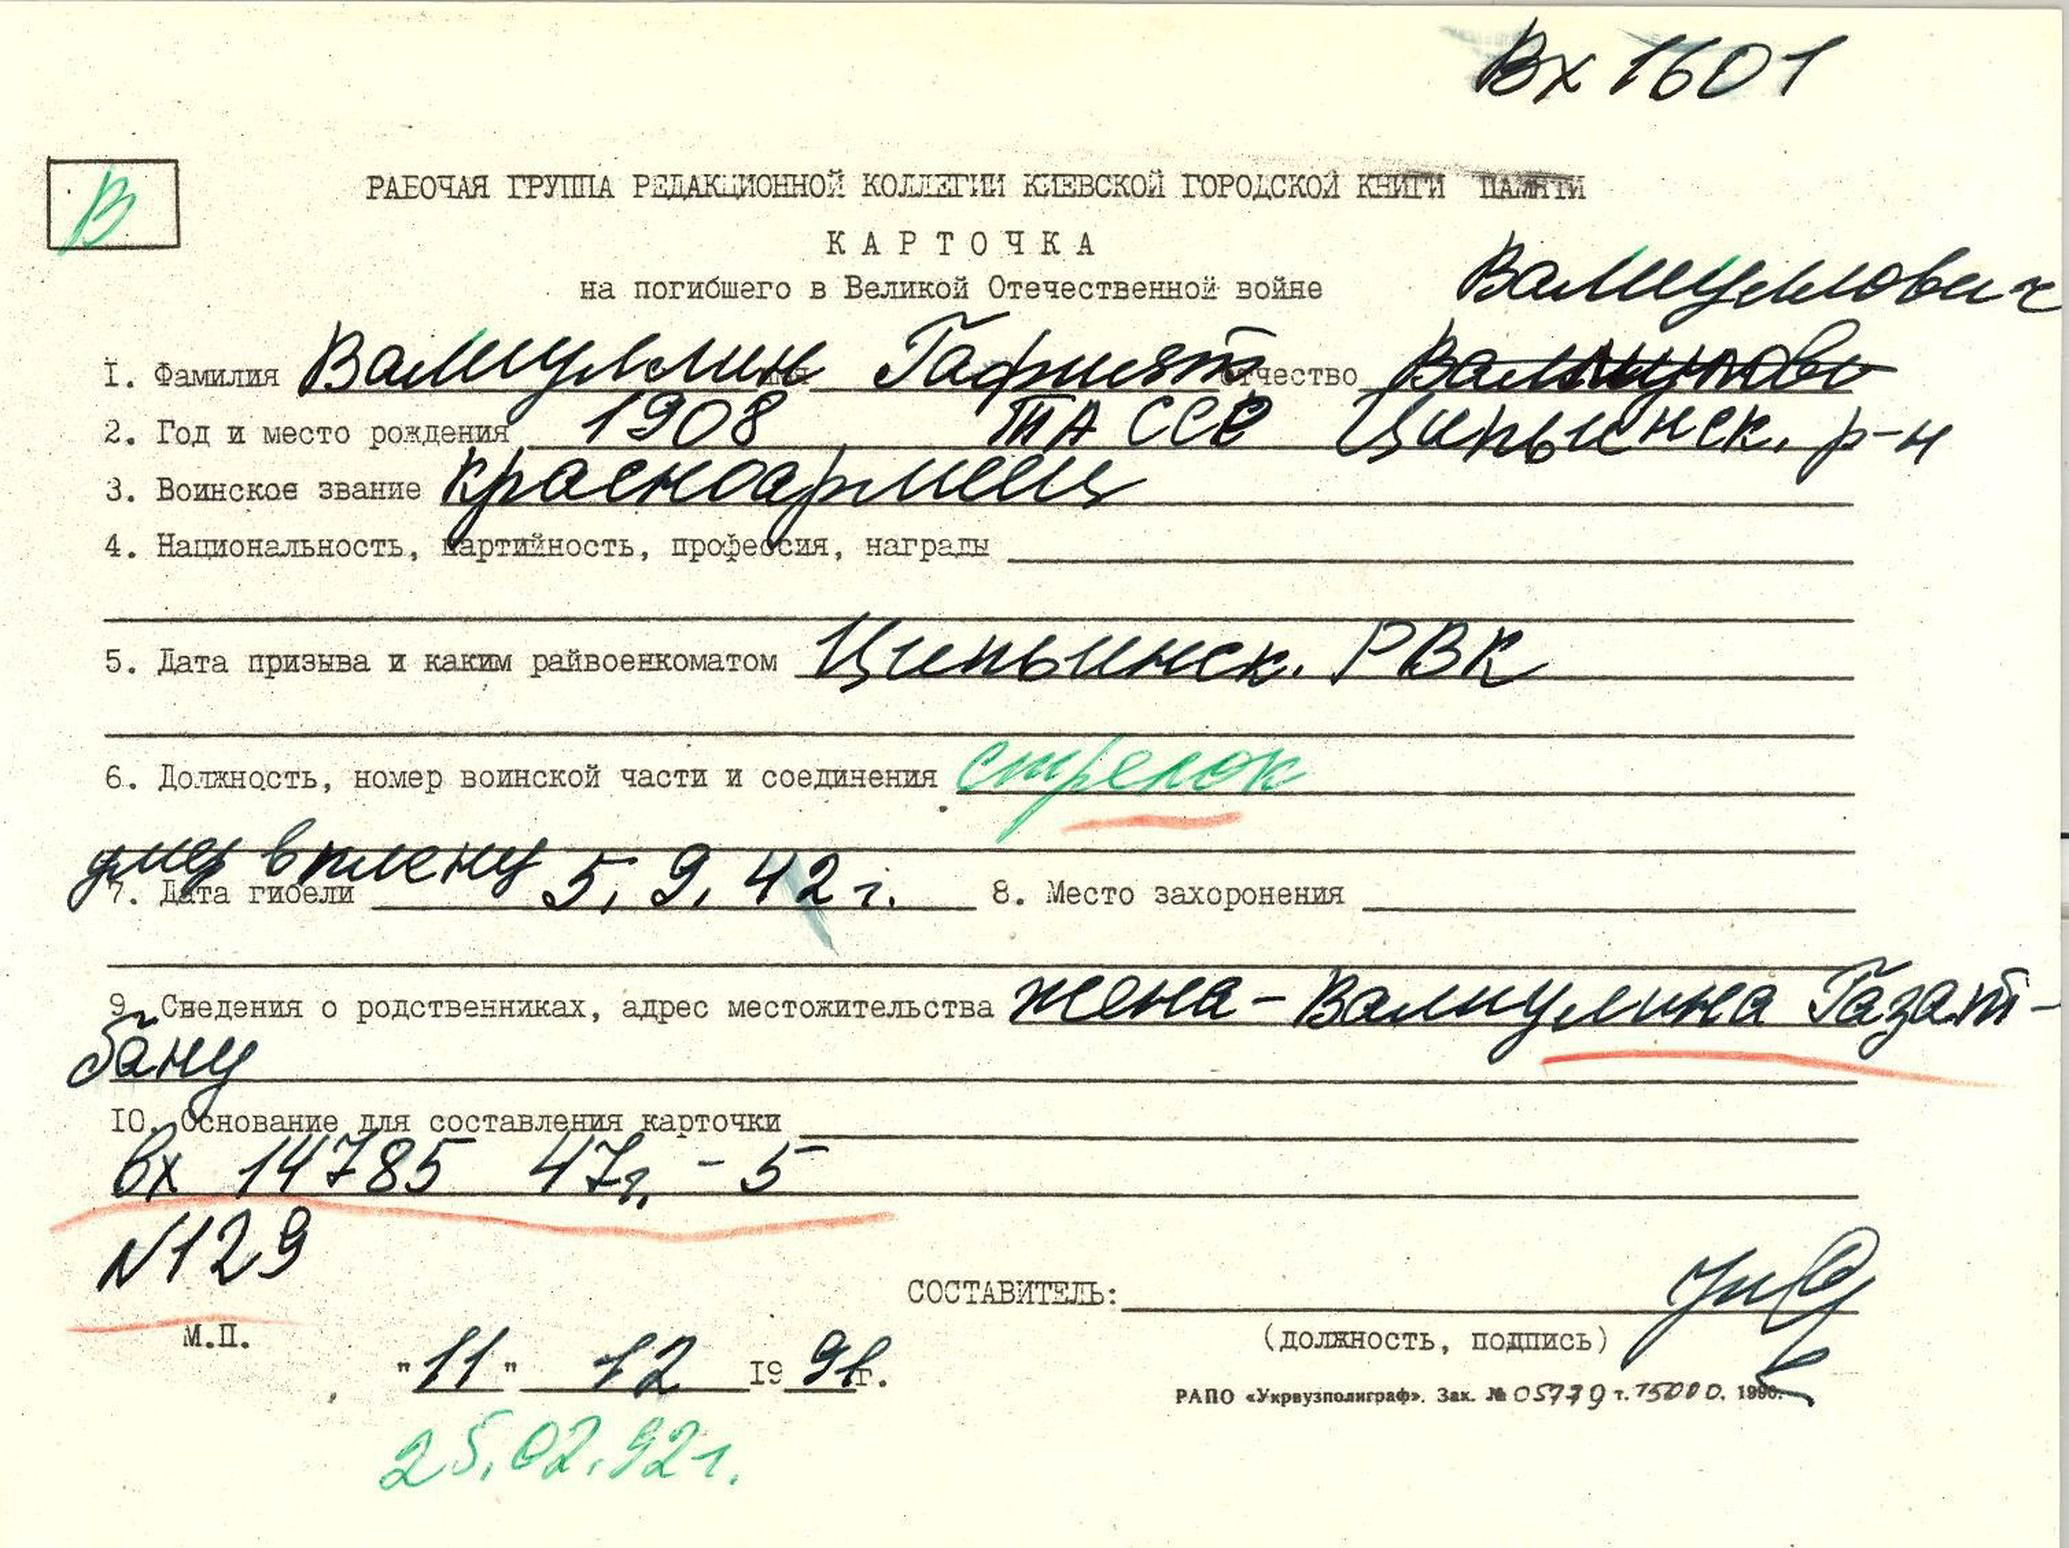 Вх 1601
В
РАБОЧАЯ ГРУППА РЕДАКЦИОННОЙ КОЛЛЕГИИ КИЕВСКОЙ ГОРОДСКОЙ КНИГИ ПАМЯТИ
КАРТОЧКА
на погибшего в Великой Отечественной войне
Валиуллович
1. Фамилия Валиуллин имя Гафият отчество
2. Год и место рождения 1908, ТА ССР Ципьинск. р-н
3. Воинское звание красноармеец
4. Национальность, партийность, профессия, награды
5. Дата призыва и каким райвоенкоматом Ципьинск. РВК
6. Должность, номер воинской части и соединения стрелок
умер в плену
7. Дата гибели 5.9.42 г. 8. Место захоронения
9. Сведения о родственниках, адрес местожительства жена - Валиулина Газат-
бану
10. Основание для составления карточки
вх 14785 47г. - 5
N129
СОСТАВИТЕЛЬ:
М.П.
(должность, подпись)
"11" 12 1991г.
РАПО «Укрвузполиграф». Зак. № 05779 т. 15000. 1990.
25.02.92г.